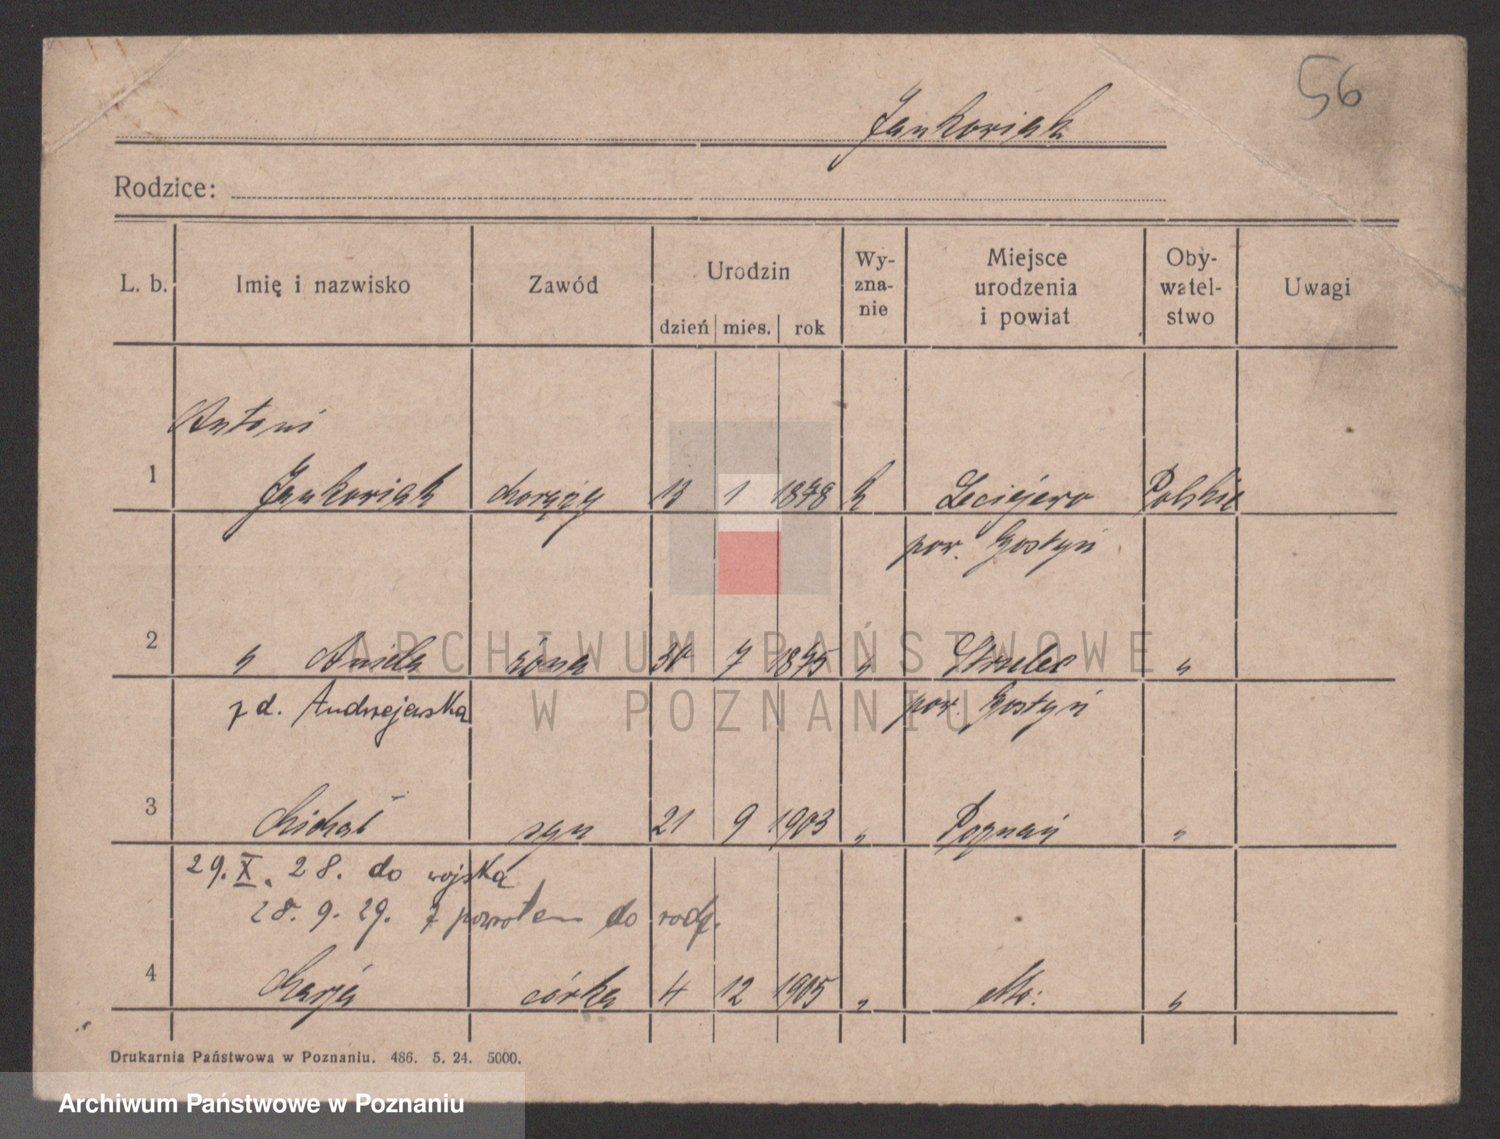 56
Jankowiak
Rodzice:
L. b. Imię i nazwisko Zawód Urodzin dzień mies. rok Wy- zna- nie Miejsce urodzenia i powiat Oby- watel- stwo Uwagi
Antoni
1 Jankowiak chorąży 13 1 1878 k Polskie
pow. Gostyń
2 " Aniela żona 30 7 1875 " Strzelce "
z d. Andrzejewska pow. Gostyń
3 Michał syn 21 9 1903 " Poznań "
29. X. 28. do wojska
28. 9. 29. z powrotem do rodz.
4 Marja córka 4 12 1905 " "
Drukarnia Państwowa w Poznaniu. 486. 5. 24. 5000.
ARCHIWUM PAŃSTWOWE
W POZNANIU
Archiwum Państwowe w Poznaniu